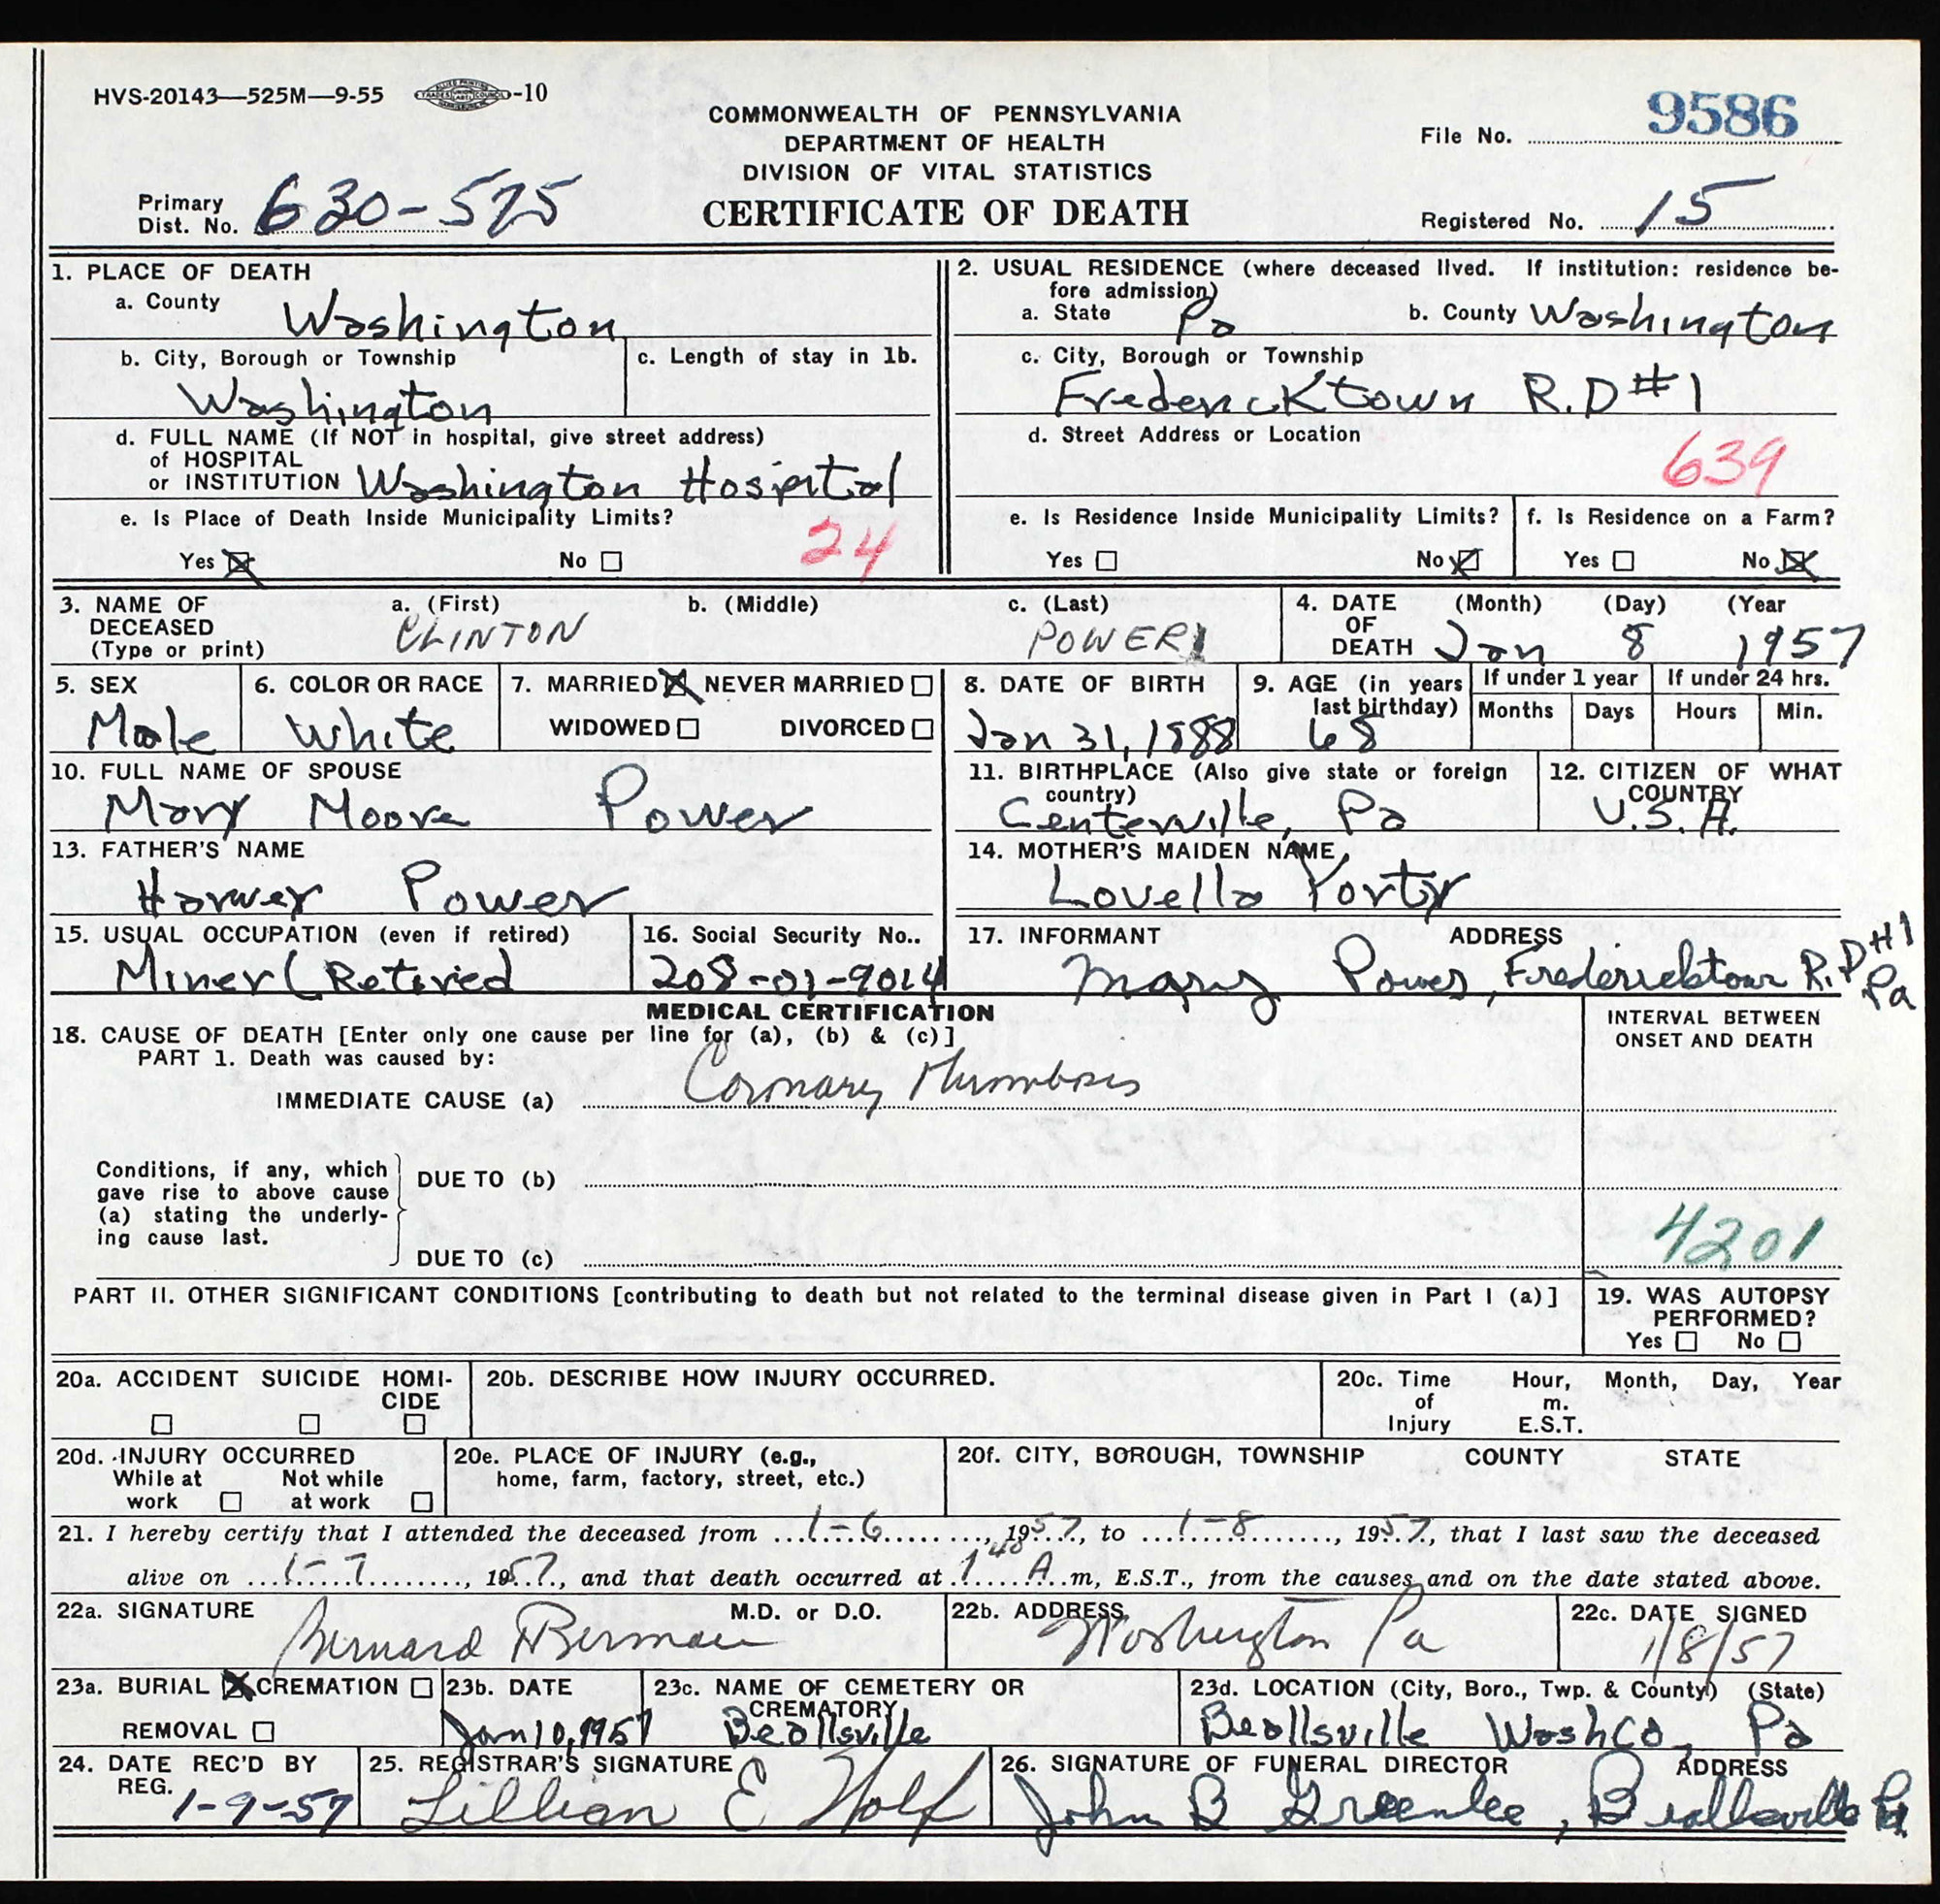 HVS-20143—525M—9-55 -10
COMMONWEALTH OF PENNSYLVANIA
DEPARTMENT OF HEALTH
DIVISION OF VITAL STATISTICS
CERTIFICATE OF DEATH
File No. 9586
Primary
Dist. No. 630-575
Registered No. 15
1. PLACE OF DEATH
a. County Washington
b. City, Borough or Township
Washington
c. Length of stay in 1b.
d. FULL NAME (If NOT in hospital, give street address)
of HOSPITAL
or INSTITUTION Washington Hospital
e. Is Place of Death Inside Municipality Limits?
24
Yes No
2. USUAL RESIDENCE (where deceased lived. If institution: residence be-
fore admission)
a. State Pa b. County Washington
c. City, Borough or Township
Fredericktown R.D #1
d. Street Address or Location
639
e. Is Residence Inside Municipality Limits?
Yes No
f. Is Residence on a Farm?
Yes No
3. NAME OF
DECEASED
(Type or print)
a. (First) b. (Middle) c. (Last)
CLINTON POWER
4. DATE (Month) (Day) (Year
OF
DEATH Jan 8 1957
5. SEX
Male
6. COLOR OR RACE
White
7. MARRIED NEVER MARRIED
WIDOWED DIVORCED
8. DATE OF BIRTH
Jan 31, 1888
9. AGE (in years
last birthday)
68
If under 1 year
Months Days
If under 24 hrs.
Hours Min.
10. FULL NAME OF SPOUSE
Mary Moore Power
11. BIRTHPLACE (Also give state or foreign
country)
Centerville, Pa
12. CITIZEN OF WHAT
COUNTRY
U.S.A.
13. FATHER'S NAME
Harvey Power
14. MOTHER'S MAIDEN NAME
Lovella Yorty
15. USUAL OCCUPATION (even if retired)
Miner (Retired
16. Social Security No..
208-01-9014
17. INFORMANT ADDRESS
Mary Power, Fredericktown R.D #1
Pa
MEDICAL CERTIFICATION
18. CAUSE OF DEATH [Enter only one cause per line for (a), (b) & (c)]
PART 1. Death was caused by:
IMMEDIATE CAUSE (a) Coronary Thrombosis
INTERVAL BETWEEN
ONSET AND DEATH
Conditions, if any, which
gave rise to above cause
(a) stating the underly-
ing cause last.
DUE TO (b)
DUE TO (c)
4201
PART II. OTHER SIGNIFICANT CONDITIONS [contributing to death but not related to the terminal disease given in Part I (a)]
19. WAS AUTOPSY
PERFORMED?
Yes No
20a. ACCIDENT SUICIDE HOMI-
CIDE
20b. DESCRIBE HOW INJURY OCCURRED.
20c. Time Hour, Month, Day, Year
of m.
Injury E.S.T.
20d. INJURY OCCURRED
While at Not while
work at work
20e. PLACE OF INJURY (e.g.,
home, farm, factory, street, etc.)
20f. CITY, BOROUGH, TOWNSHIP COUNTY STATE
21. I hereby certify that I attended the deceased from 1-6, 1957, to 1-8, 1957, that I last saw the deceased
alive on 1-7, 1957, and that death occurred at 1 40 A m, E.S.T., from the causes and on the date stated above.
22a. SIGNATURE M.D. or D.O.
Bernard Berman
22b. ADDRESS
Washington Pa
22c. DATE SIGNED
1/8/57
23a. BURIAL CREMATION
REMOVAL
23b. DATE
Jan 10, 1957
23c. NAME OF CEMETERY OR
CREMATORY
Beallsville
23d. LOCATION (City, Boro., Twp. & County) (State)
Beallsville Wash Co. Pa
24. DATE REC'D BY
REG.
1-9-57
25. REGISTRAR'S SIGNATURE
Lillian E Wolf
26. SIGNATURE OF FUNERAL DIRECTOR ADDRESS
John B Greenlee, Beallsville Pa